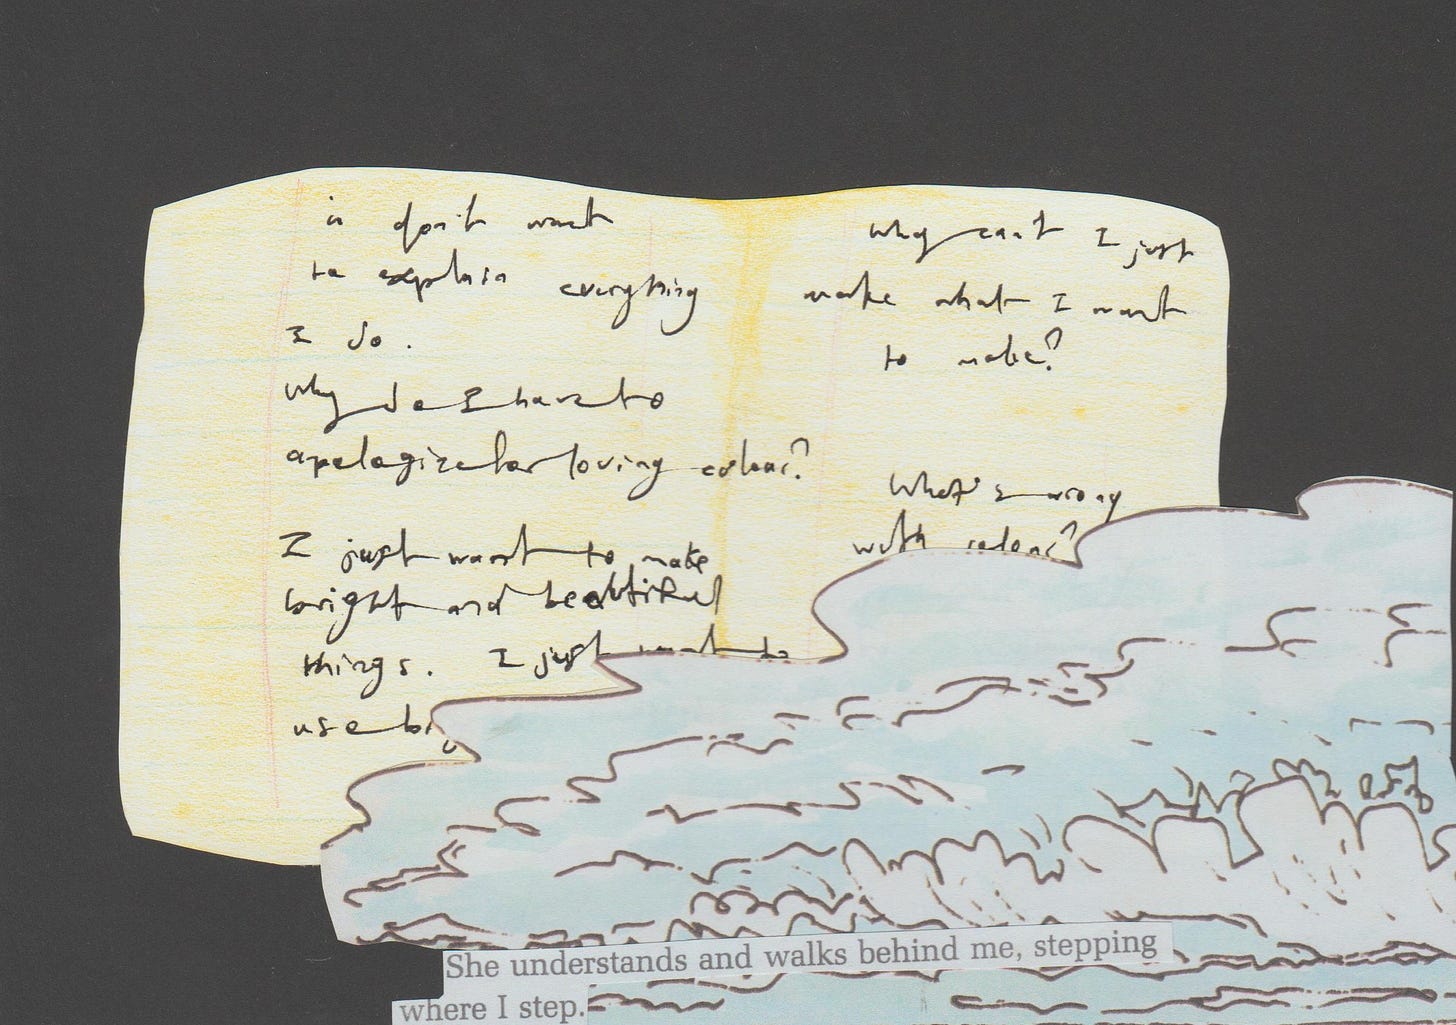 i don't want
to explain everything
I do.
why do I have to
apologize for loving colour?
I just want to make
bright and beautiful
things. I just want to
use
why can't I just
make what I want
to make?
What's wrong
with colour?
She understands and walks behind me, stepping
where I step.